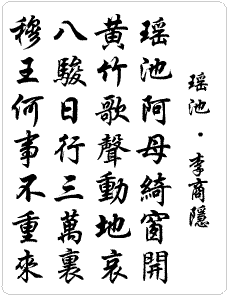 瑤池·李商隱
瑤池阿母綺窗開
黃竹歌聲動地哀
八駿日行三萬裏
穆王何事不重來